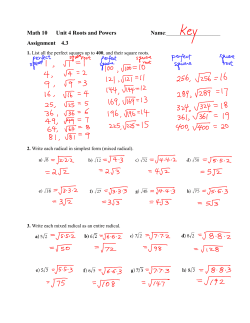 Math 10 Unit 4 Roots and Powers Name: Key
Assignment 4.3
1. List all the perfect squares up to 400, and their square roots.
perfect square square root perfect square square root
1, √1 = 1
4, √4 = 2
9, √9 = 3
16, √16 = 4
25, √25 = 5
36, √36 = 6
49, √49 = 7
64, √64 = 8
81, √81 = 9
100, √100 = 10
121, √121 = 11
144, √144 = 12
169, √169 = 13
196, √196 = 14
225, √225 = 15
256, √256 = 16
289, √289 = 17
324, √324 = 18
361, √361 = 19
400, √400 = 20
2. Write each radical in simplest form (mixed radical).
a) √8 = √2·2·2 b) √12 = √4·3 c) √32 = √4·4·2 d) √50 = √5·5·2
= 2√2 = 2√3 = 4√2 = 5√2
e) √18 = √3·3·2 f) √27 = √3·3·3 g) √48 = √4·4·3 h) √75 = √5·5·3
= 3√2 = 3√3 = 4√3 = 5√3
3. Write each mixed radical as an entire radical.
a) 5√2 = √5·5·2 b) 6√2 = √6·6·2 c) 7√2 = √7·7·2 d) 8√2 = √8·8·2
= √50 = √72 = √98 = √128
e) 5√3 = √5·5·3 f) 6√3 = √6·6·3 g) 7√3 = √7·7·3 h) 8√3 = √8·8·3
= √75 = √108 = √147 = √192